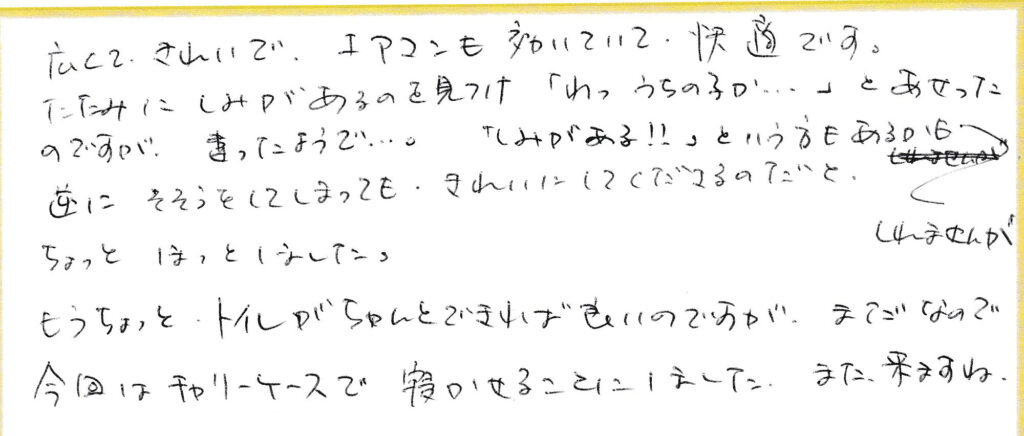 広くて、きれいで、エアコンも効いていて、快適です。
たたみにしみがあるのを見つけ「わっ うちの子が…」とあせった
のですが、違ったようで…。「しみがある!!」という方もあるかも
しれませんが
逆に そそうをしてしまっても、きれいにしてくださるのだと、
ちょっと ほっとしました。
もうちょっと、トイレがちゃんとできれば良いのですが、まだなので
今回はキャリーケースで 寝かせることにしました。また、来ますね。